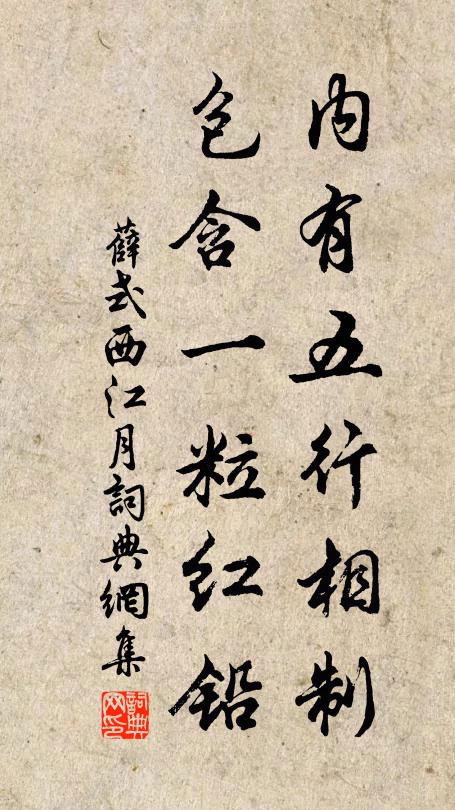 内有五行相制
包含一粒红铅
薛式西江月詞典網集
詞典
网印